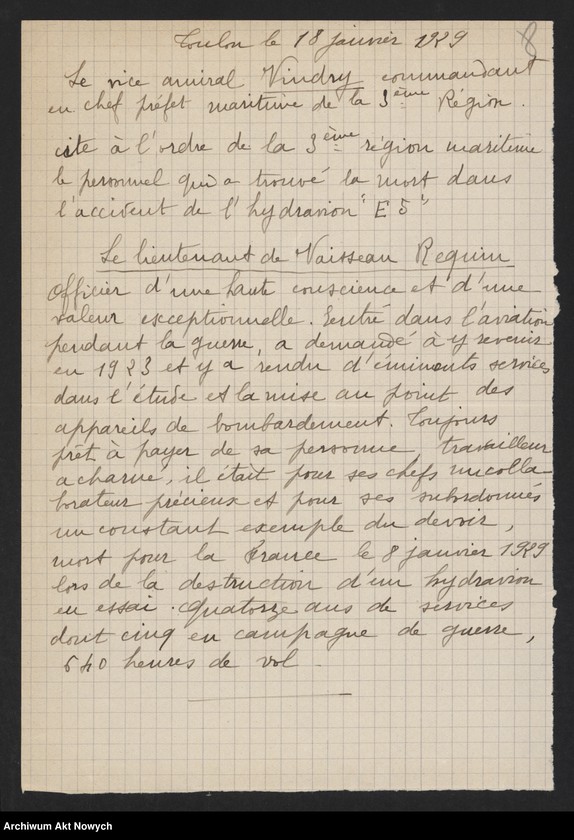 8
Toulon le 18 janvier 1929
Le vice amiral Vindry commandant
en chef préfet maritime de la 3ème Région.
cite à l'ordre de la 3ème région maritime
le personnel qui a trouvé la mort dans
l'accident de l'hydravion "E 5"
Le lieutenant de Vaisseau Requin
Officier d'une haute conscience et d'une
valeur exceptionnelle. Entré dans l'aviation
pendant la guerre, a demandé à y revenir
en 1923 et y a rendu d'éminents services
dans l'étude et la mise au point des
appareils de bombardement. Toujours
prêt à payer de sa personne, travailleur
acharné, il était pour ses chefs un colla
borateur précieux et pour ses subordonnés
un constant exemple du devoir,
mort pour la France le 8 janvier 1929
lors de la destruction d'un hydravion
en essai. Quatorze ans de services
dont cinq en campagne de guerre,
640 heures de vol.
Archiwum Akt Nowych